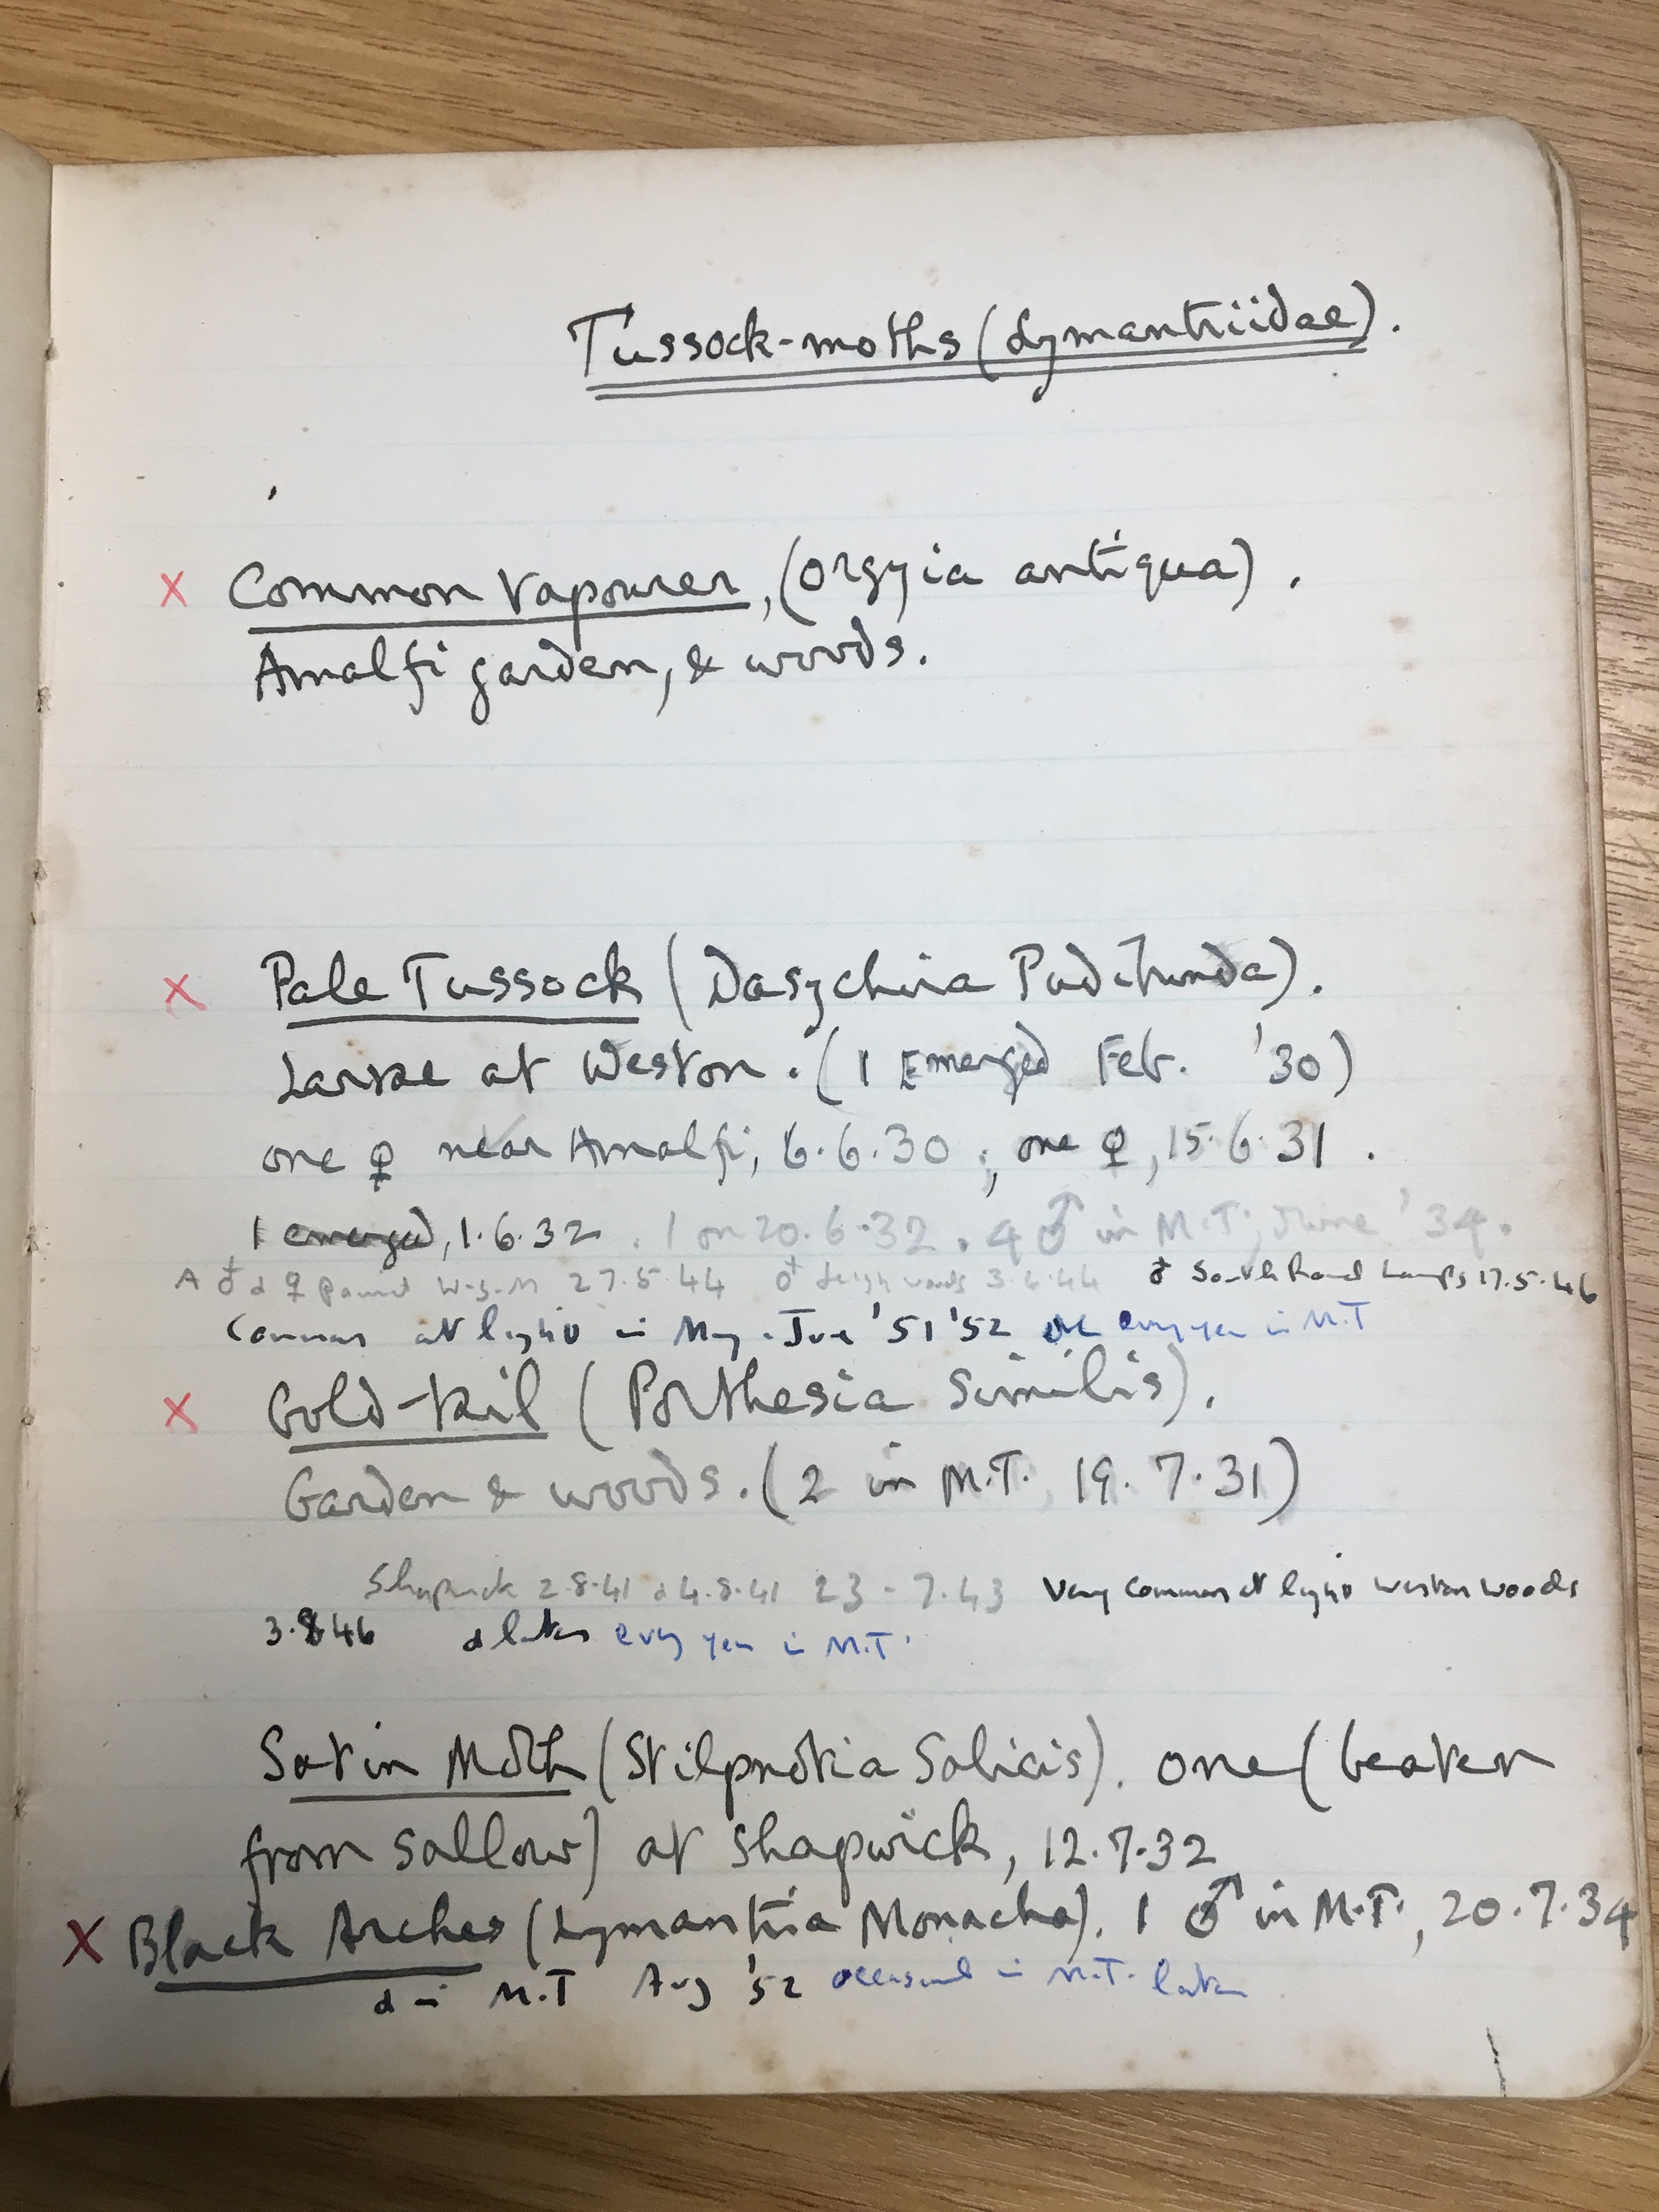 Tussock-moths (Lymantriidae).
x Common Vapourer, (Orgyia antiqua).
Amalfi garden, & woods.
x Pale Tussock (Dasychira Pudibunda).
Larvae at Weston. (1 Emerged Feb. '30)
one ♀ near Amalfi, 6.6.30; one ♀, 15.6.31.
1 emerged, 1.6.32. 1 on 20.6.32. 4 ♂ in M.T; June '34.
A ♂ & ♀ paired W-S-M 27.5.44 ♂ Leigh woods 3.6.44 ♂ South Road Lamps 17.5.46
Common at light in May - June '51 '52 every year in M.T
x Gold-tail (Porthesia Similis).
Garden & woods. (2 in M.T. 19.7.31)
Shapwick 2.8.41 & 4.8.41 23-7.43 Very common at light Weston Woods
3.8.46 & later every year in M.T.
Satin Moth (Stilpnotia Salicis). one (beaten
from sallow) at Shapwick, 12.7.32
X Black Arches (Lymantria Monacha). 1 ♂ in M.T., 20.7.34
& in M.T Aug '52 occasional in M.T. later